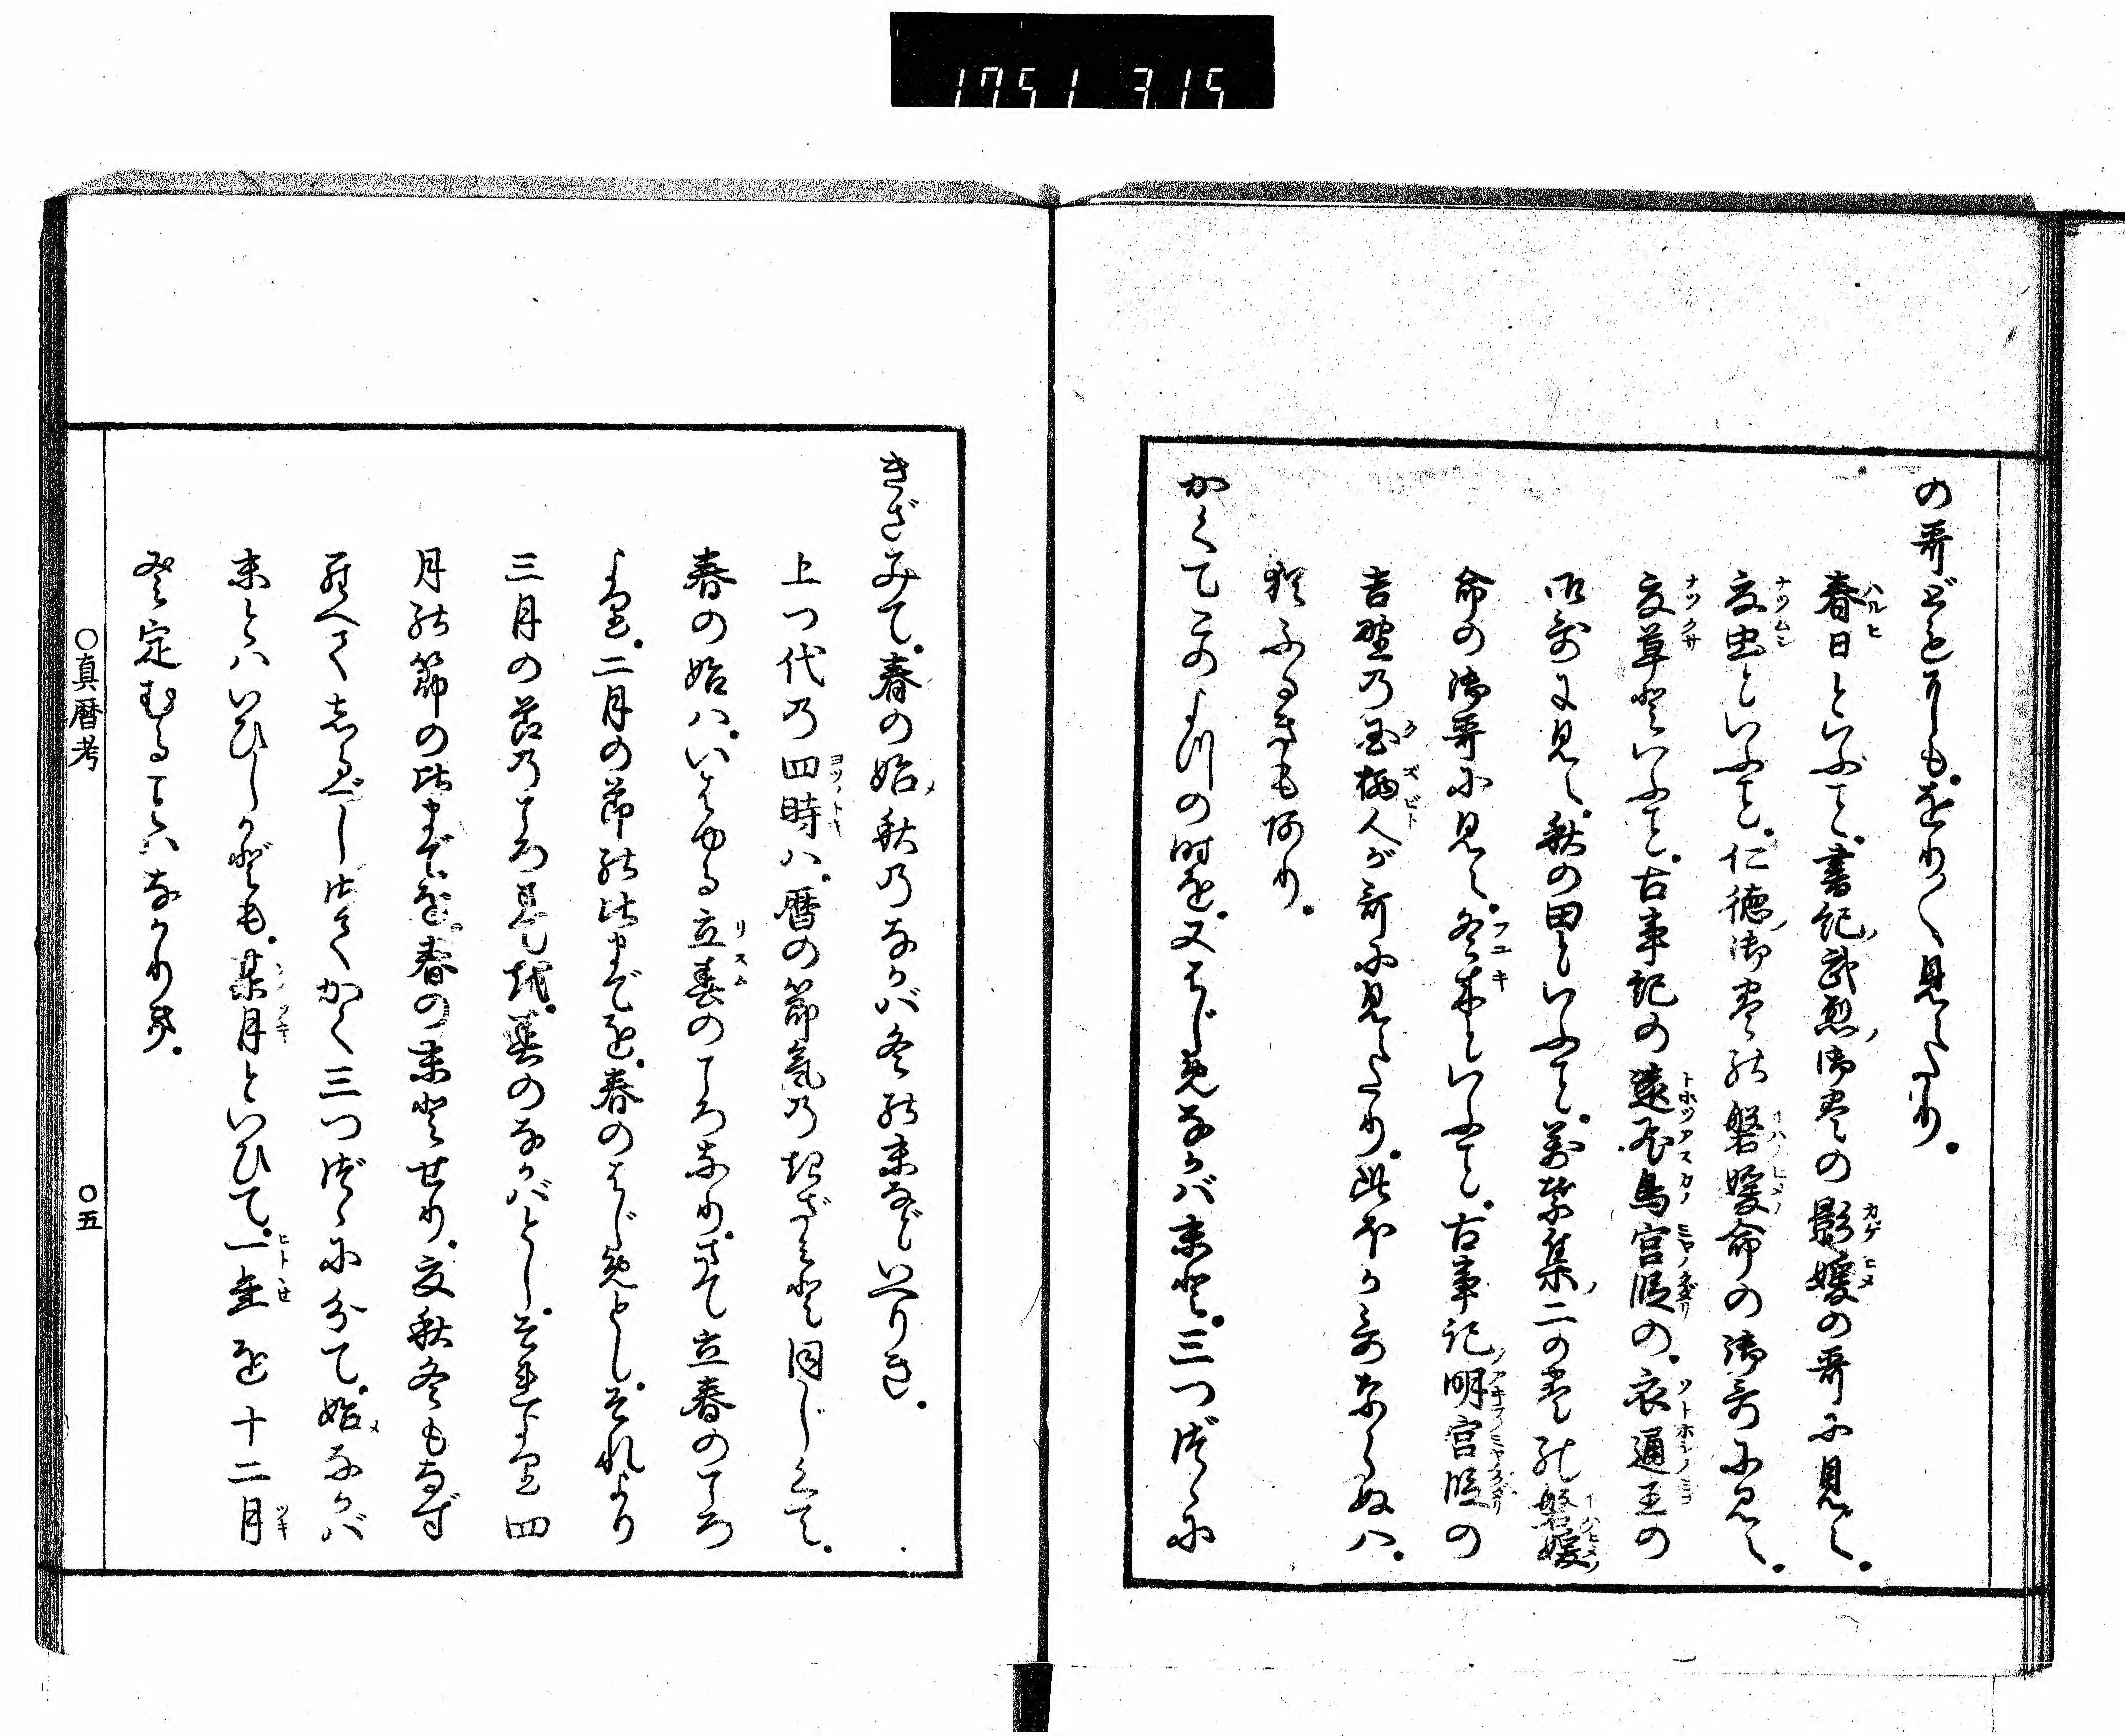 1751 315
の哥どもにも。をり〳〵見えたり。
春日といふこと。書紀武烈御巻の影媛の哥に見え。
夏虫といふこと。仁徳御巻の磐媛命の御哥に見え。
夏草といふこと。古事記の遠飛鳥宮段の。衣通王の
御哥に見え。秋の田といふこと。萬葉集二の巻の磐媛
命の御哥に見え。冬木といふこと。古事記明宮段の
吉野の国栖人が哥に見えたり。此ほか哥ならぬハ。
猶ふるきも阿り。
かくてこのよつの時を。又はじめなかバ末と。三つづゝに
きざみて。春の始秋のなかバ冬の末などいへりき。
上つ代の四時ハ。暦の節氣のきざみと同じくて。
春の始ハ。いはゆる立春のころなり。さて立春のころ
より。二月の節のほどまでを。春のはじめとし。それより
三月の節のころまでを。春のなかバとし。それより四
月の節の比までを。春の末とせり。夏秋冬もなず
らへてしるべし。さてかく三つづゝに分て。始なかバ
末とハいひしかども。某月といひて。一年を十二月
と定むることハなかりき。
○真暦考 ○五